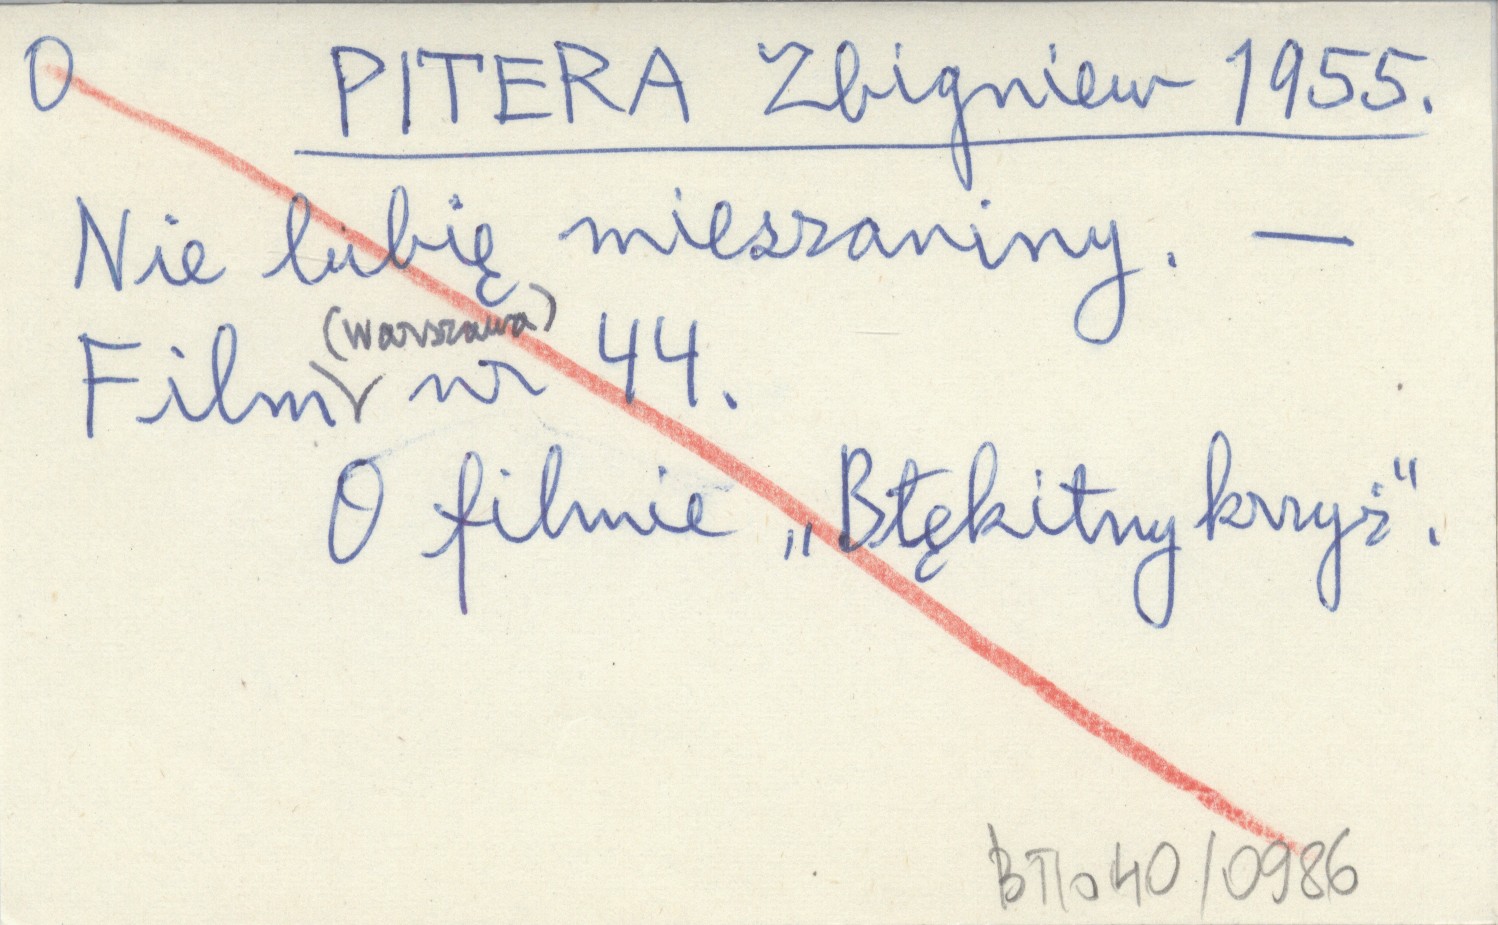 O PITERA Zbigniew 1955.
Nie lubię mieszaniny. —
(Warszawa)
Film nr 44.
O filmie „Błękitny krzyż".
40/0986